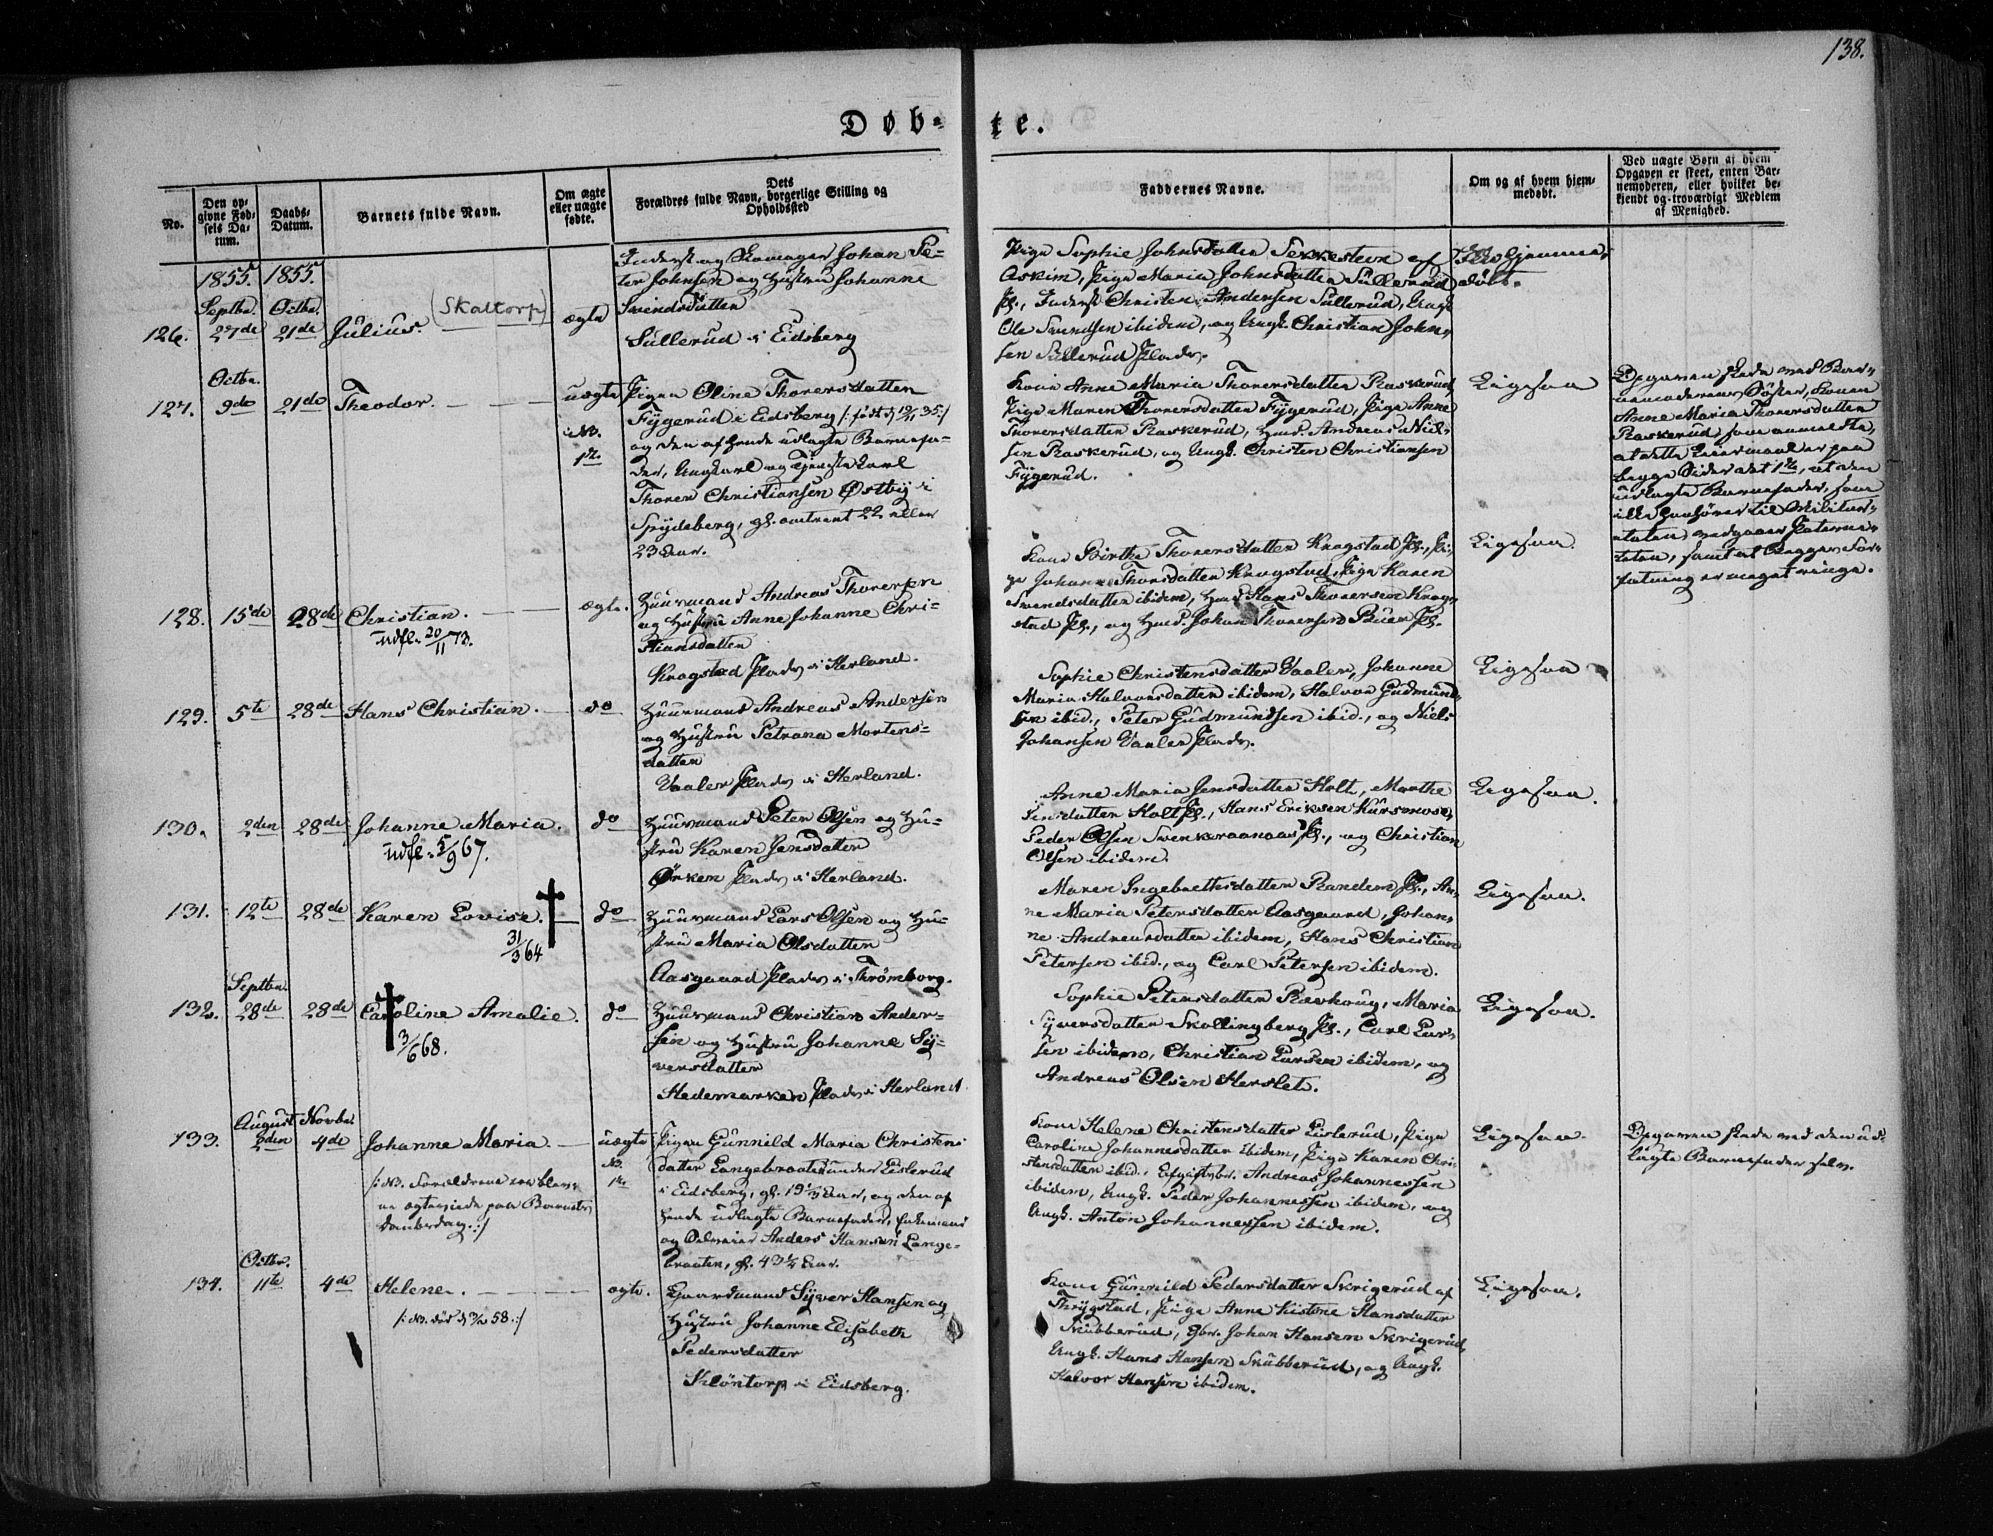 138.
Døb-
te.
No.
Den op-
givne Fød-
sels Da-
tum.
Daabs-
Datum.
Barnets fulde Navn.
Om ægte
eller uægte
fødte.
Dets
Forældres fulde Navn, borgerlige Stilling og
Opholdssted
Faddernes Navne.
Om og af hvem hjem-
medøbt.
Ved uægte Børn af hvem
Opgaven er skeet, enten Bar-
nemoderen, eller hvilket be-
kjendt og troværdigt Medlem
af Menighed.
1855. 1855.
126.
Septbr.
27de
Octbr.
21de
Julius (Skaltorp)
ægte
Inderst og Skomager Johan Pe-
ter Johnsen og Hustru Johanne
Svendsdatter
Sullerud i Eidsberg
Pige Sophie Johnsdatter Sekkesteen af
Askim, Pige Maria Johnsdatter Sullerud
Pl., Inderst Christen Andersen Sullerud, Ungk.
Ole Svendsen ibidem, og Ungk. Christian John-
sen Sullerud Plads.
Ikke hjemme-
døbt.
127.
Octbr.
9de
21de
Theodor.
uægte
NB.
1ste
Pigen Oline Thorersdatter
Fygerud i Eidsberg /: født d. 12/1 35 :/
og den af hende udlagte Barnefa-
der, Ungkarl og Tjenestekarl
Thorer Christiansen Østby i
Spydeberg, gl. omtrent 22 eller
23 Aar.
Kone Anne Maria Thorersdatter Raskerud,
Pige Maren Thorersdatter Fygerud, Pige Anne
Thorersdatter Raskerud, Huusm. Andreas Niel-
sen Raskerud, og Ungk. Christen Christiansen
Fygerud.
Ligesaa
Opgaven skede med Bar-
nemoderens Søster, Konen
Anne Maria Thorersdatter
Raskerud, som anmeldte,
at dette Leiermaal er paa
begge Sider det 1ste, at den
udlagte Barnefader, som
ikke henhører til Militær-
etaten, vedgaaer Paterni-
teten, samt at Begges For-
fatning er meget ringe.
128.
15de
28de
Christian.
udfl. 20/11 73.
ægte.
Huusmand Andreas Thorersen
og Hustru Anne Johanne Chri-
stiansdatter
Kragstad Plads i Herland.
Kone Birthe Thorersdatter Kragstad Pl., Pi-
ge Johanne Thorsdatter Kragstad, Pige Karen
Svendsdatter ibidem, Huusm. Hans Thorersen Krag-
stad Pl., og Huusm. Johan Thorersen Buer Pl.
Ligesaa.
129.
5te
28de
Hans Christian.
do
Huusmand Andreas Andersen
og Hustru Petrona Mortens-
datter
Vaaler Plads i Herland.
Sophie Christensdatter Vaaler, Johanne
Maria Halvorsdatter ibidem, Halvor Gudmund-
sen ibid., Peter Gudmundsen ibid., og Niels
Johansen Vaaler Plads.
Ligesaa
130.
2den
28de
Johanne Maria.
udfl. 5/9 67.
do
Huusmand Peter Olsen og Hu-
stru Karen Jensdatter
Ørken Plads i Herland.
Anne Maria Jensdatter Holt, Marthe
Jensdatter Holt Pl., Hans Eriksen Kursmose,
Peder Olsen Svenkeraanaas Pl., og Christian
Olsen ibidem.
Ligesaa.
131.
12te
28de
Karen Lovise.
31/3 64
do
Huusmand Lars Olsen og Hu-
stru Maria Olsdatter
Aasgaard Plads i Thrømborg.
Maren Ingebrethsdatter Randem Pl., An-
ne Maria Petersdatter Aasgaard, Johan-
ne Andreasdatter ibidem, Hans Christian
Petersen ibid., og Carl Petersen ibidem.
Ligesaa.
132.
Septbr.
28de
28de
Caroline Amalie.
3/6 68.
do
Huusmand Christian Ander-
sen og Hustru Johanne Sy-
versdatter
Hedemarken Plads i Herland.
Sophie Petersdatter Ravhoug, Maria
Syversdatter Skollingberg Pl., Carl Lar-
sen ibidem, Christian Larsen ibidem, og
Andreas Olsen Herslet.
Ligesaa.
133.
August
2den
Novbr.
4de
Johanne Maria.
/: NB. Forældrene ere blev-
ne ægteviede paa Barnets
Daabsdag. :/
uægte
NB.
1ste
Pigen Gunnild Maria Christens-
datter Langebraaten under Eislerud
i Eidsberg, gl. 19 1/2 Aar, og den af
hende udlagte Barnefader, Enkemand
og Anders Hansen Lange-
braaten, gl. 43 1/4 Aar.
Kone Helene Christensdatter Eislerud, Pige
Caroline Johannesdatter ibidem, Pige Karen Chri-
stensdatter ibid., Andreas Johannessen
ibidem, Ungk. Peder Johannessen ibidem, og
Ungk. Anton Johannessen ibidem.
Ligesaa.
Opgaven skede med den ud-
lagte Barnefader selv.
134.
Octbr.
11te
4de
Helene.
/: NB. død d. 58. :/
ægte.
Gaardmand Syver Hansen og
Hustru Johanne Elisabeth
Pedersdatter
Kløntorp i Eidsberg.
Kone Gunnild Pedersdatter Skrigerud af
Thrygstad, Pige Anne Kistine Hansdatter
Skubberud, Gbr. Johan Hansen Skrigerud,
Ungk. Hans Hansen Skubberud, og Ungk.
Halvor Hansen ibidem.
Ligesaa.